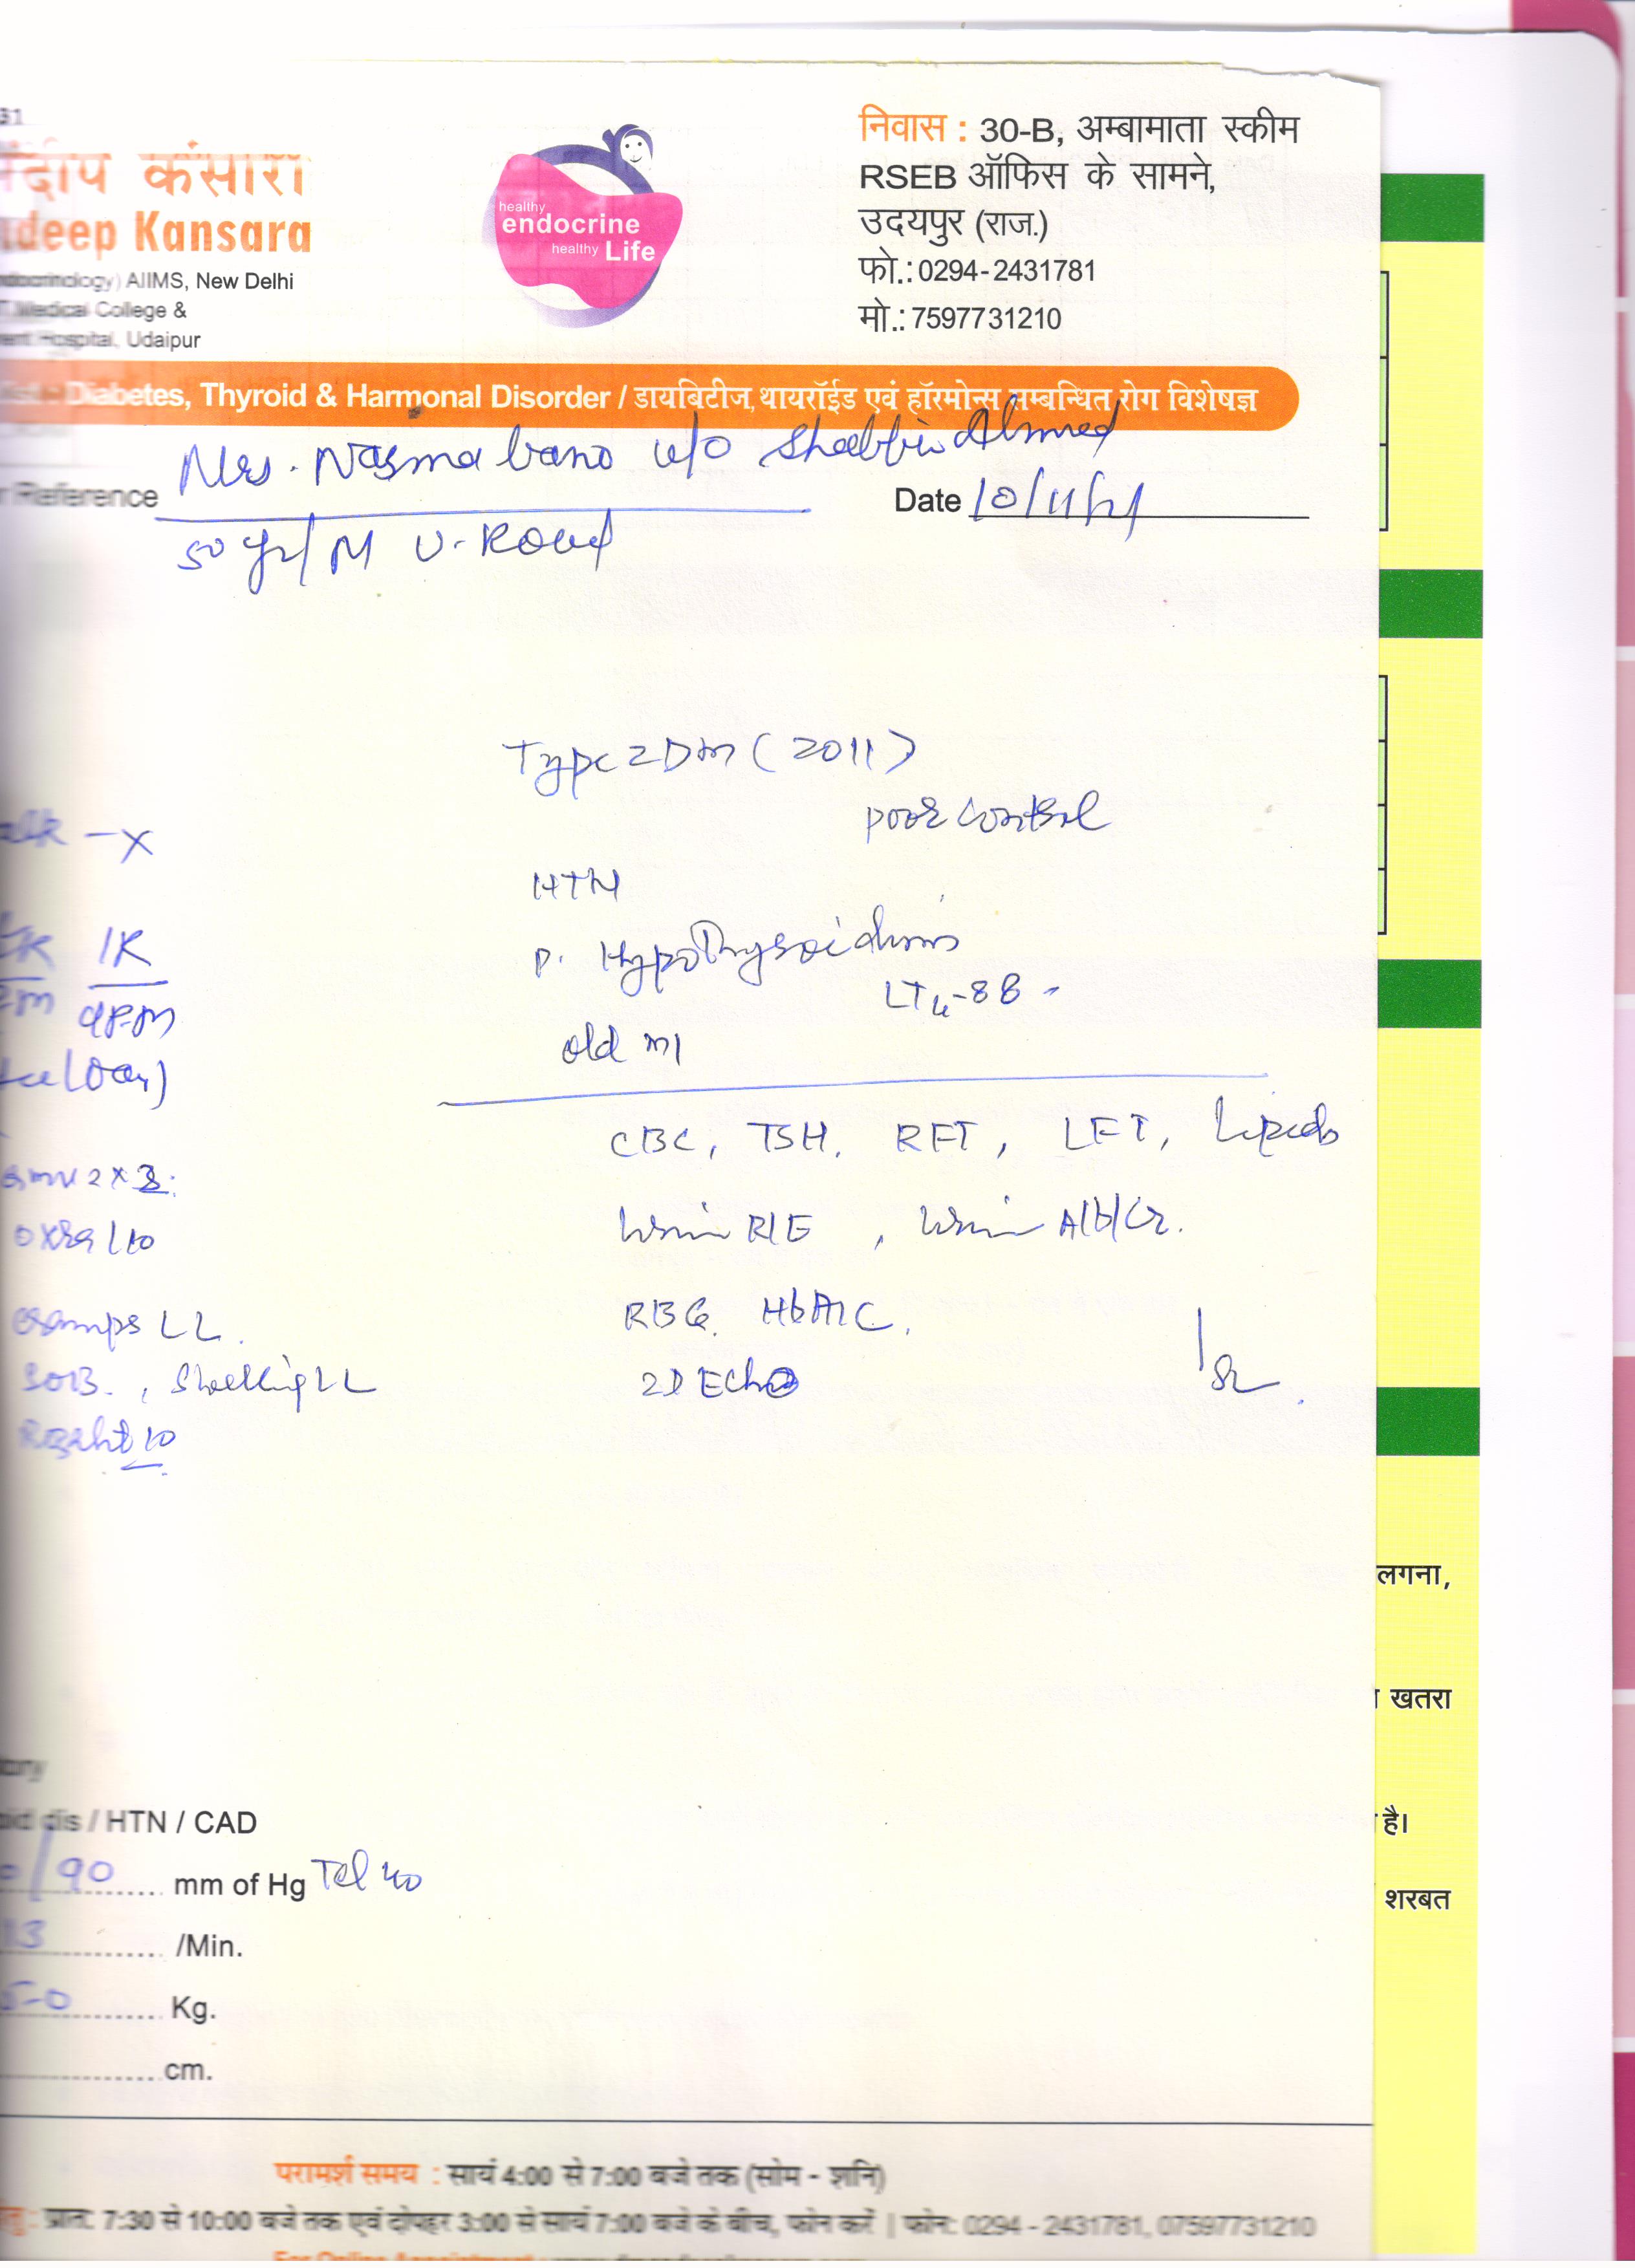 31
संदीप कंसारा
deep Kansara
AIIMS, New Delhi
Medical College &
Hospital, Udaipur
healthy
endocrine
healthy Life
निवास : 30-B, अम्बामाता स्कीम
RSEB ऑफिस के सामने,
उदयपुर (राज.)
फो.: 0294-2431781
मो.: 7597731210
Diabetes, Thyroid & Harmonal Disorder / डायबिटीज, थायरॉईड एवं हॉरमोन्स सम्बन्धित रोग विशेषज्ञ
Mrs. Nasma bano w/o Shabbir Ahmed
Reference
Date 10/11/21
50 yr/M
Type 2 DM (2011)
poor control
-X
HTN
1K
P. Hypothyroidism
LT4-88
old MI
CBC, TSH, RFT, LFT, Lipids
Urine R/E, Urine Alb/Cr.
RBG, HbA1C,
cramps LL.
SOB., Swelling LL
2D Echo
10
dis / HTN / CAD
/90 mm of Hg Tel 40
/Min.
50 Kg.
cm.
लगना,
खतरा
है।
शरबत
परामर्श समय : सायं 4:00 से 7:00 बजे तक (सोम - शनि)
प्रात: 7:30 से 10:00 बजे तक एवं दोपहर 3:00 से सायं 7:00 बजे के बीच, फोन करें | फोन: 0294 - 2431781, 07597731210